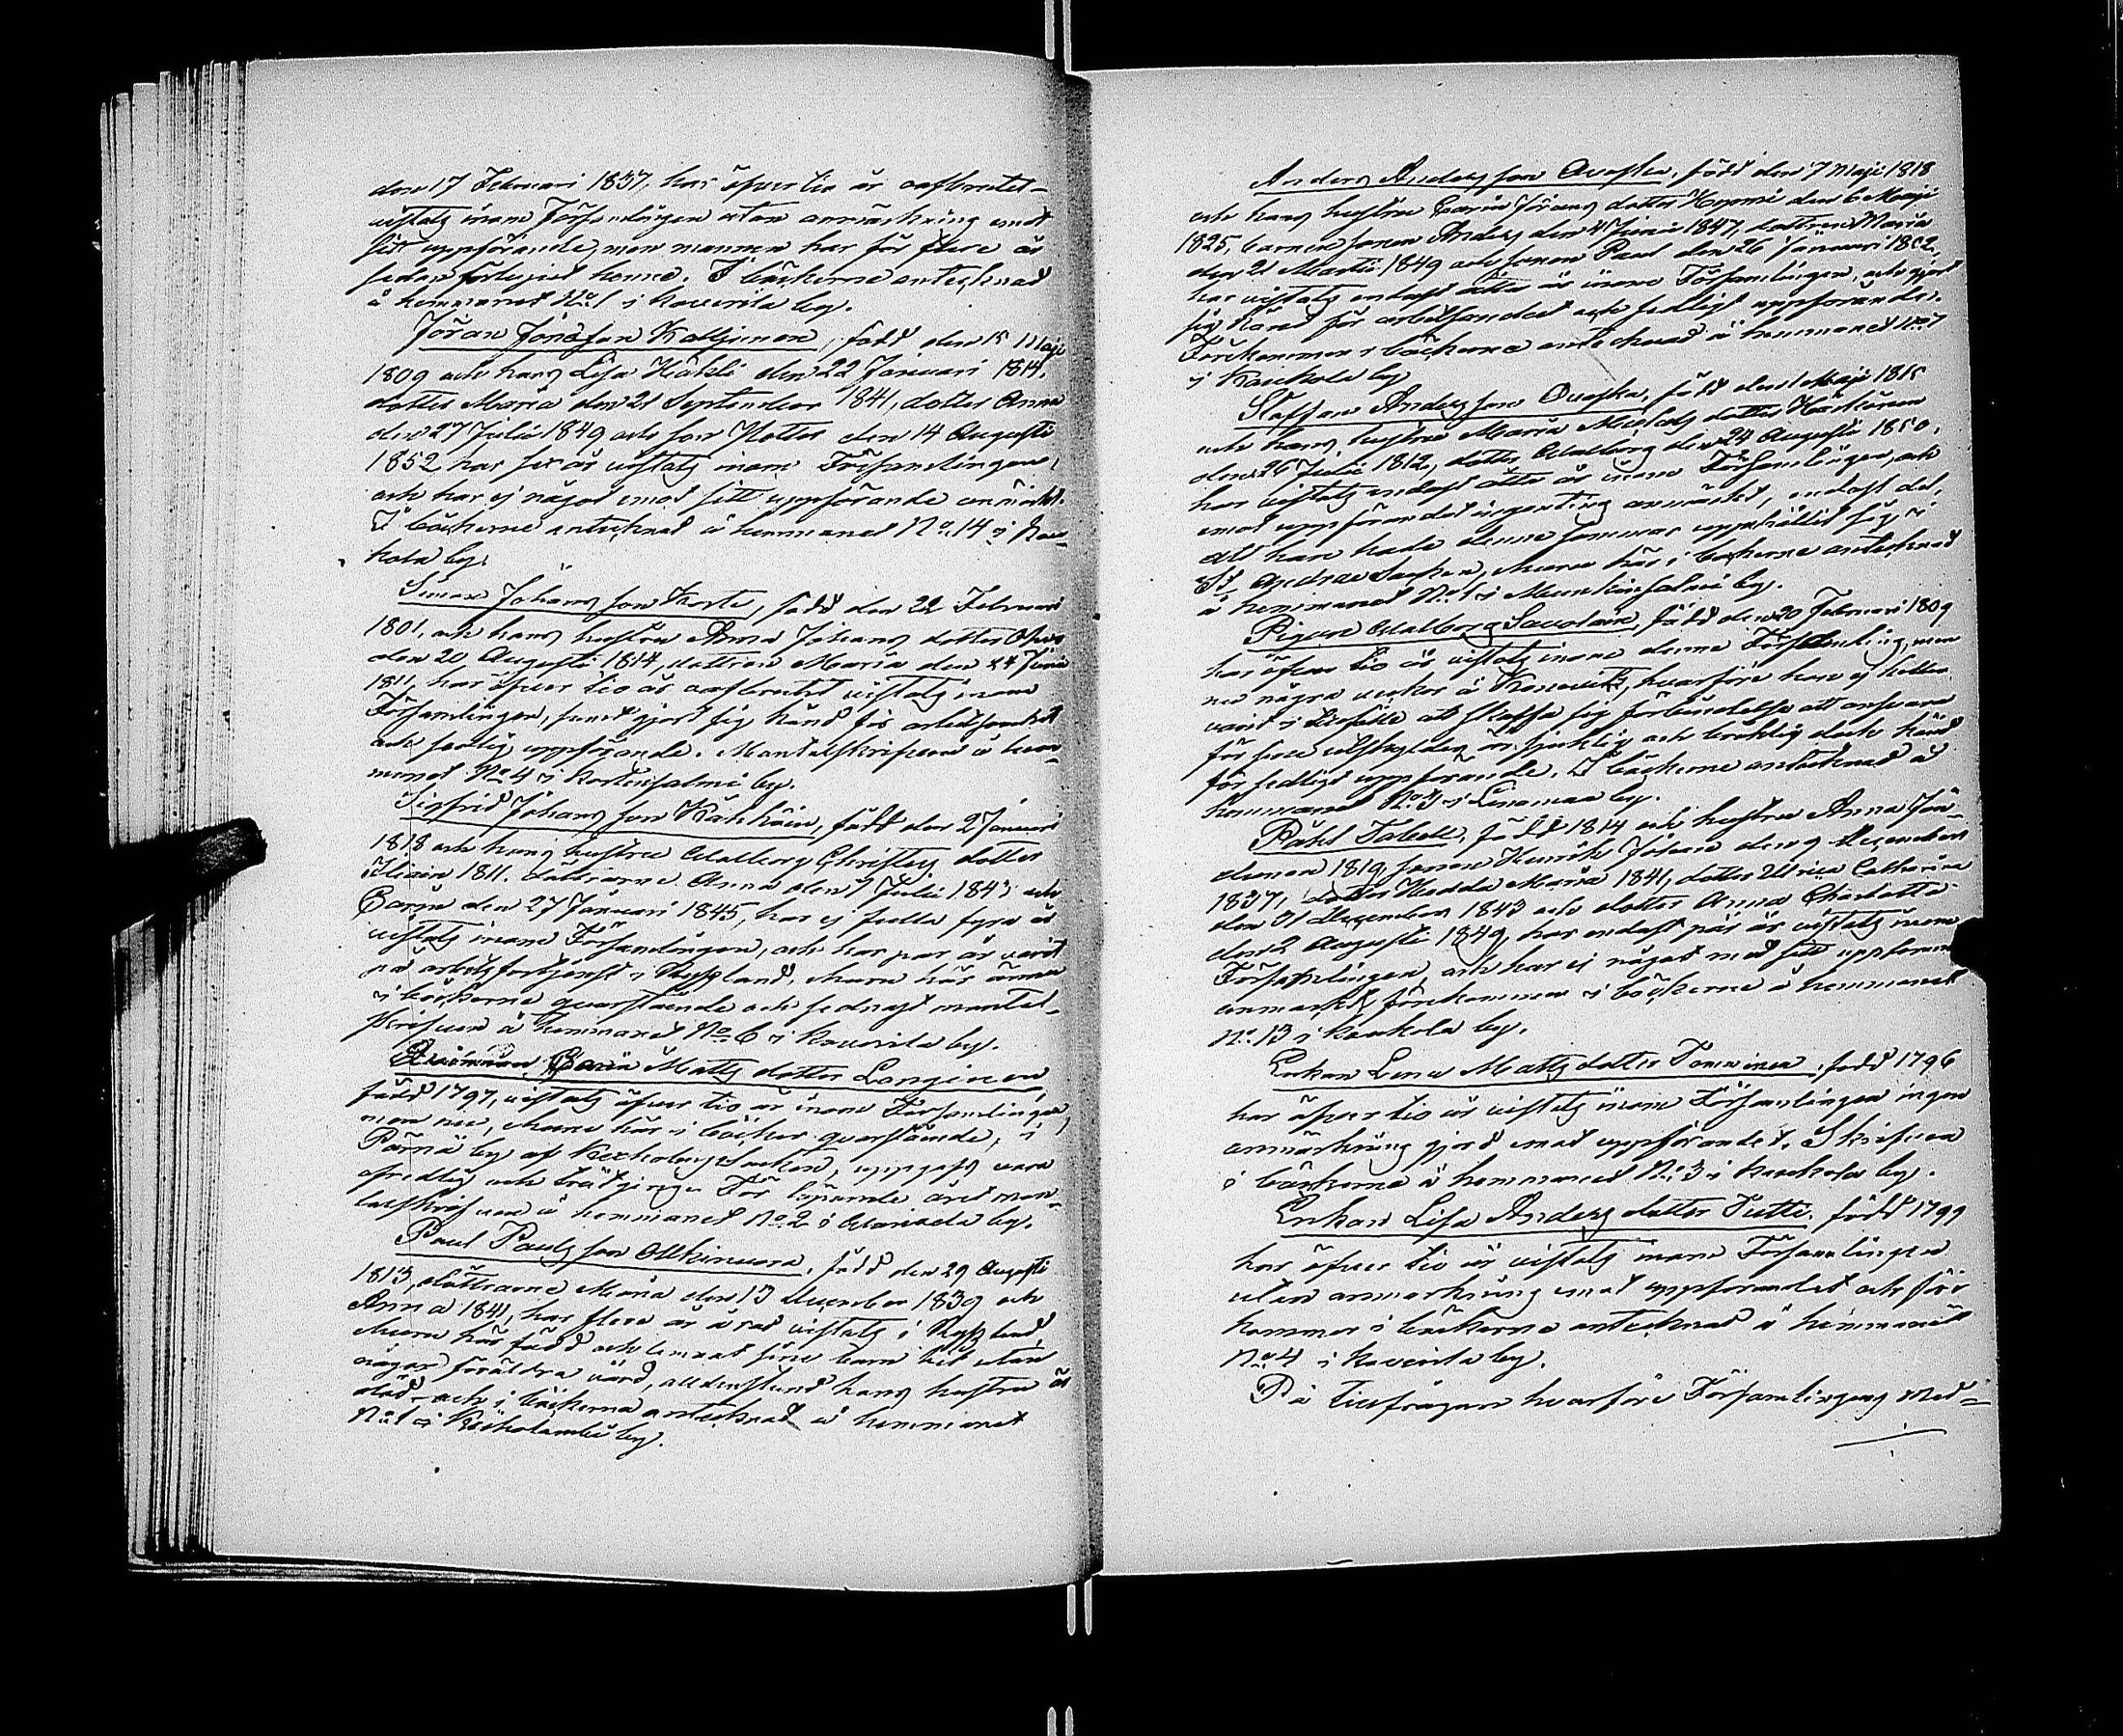 den 17 Februari 1837, har öfver tio år oafbrutet
vistats inom Församlingen utan anmärkning emot
sitt uppförande, men mannen har för flere år
sedan förlupit henne. I böckerne antecknad
å hemmanet No 1 i Kaverila by.
Jöran Jönsson Kalljunen, född den 15 Maji
1809 och hans Lisa Kähli den 22 Januari 1814,
dotter Maria den 21 September 1841, dotter Anna
den 27 Julii 1849 och son Petter den 14 Augusti
1852 har sex år vistats inom Församlingen,
och har ej något emot sitt uppförande anmärkt.
I böckerne antecknad å hemmanet No 14 i Kau-
kola by.
Simon Johansson Korte, född den 22 Februari
1801, och hans hustru Anna Johans dotter
den 20 Augusti 1814, dottren Maria den 24 Junii
1811, har öfver tio år oafbrutet vistats inom
Församlingen, samt gjort sig känd för arbetsamhet
och sedlig uppförande. Mantalskrifven å hem-
manet No 4 i Kortensalmi by.
Sigfrid Johansson Käkköin, född den 2 Januari
1818 och hans hustru Walborg Christers dotter
Iliain 1811. döttrarne Anna den 1 Julii 1843 och
Carin den 27 Januari 1845, har ej fulla fyra år
vistats inom Församlingen, och har par år varit
på arbetsförtjenst i Ryssland, men här ännu
i böckerne qvarstående och sednast mantal-
skrifven å hemmanet No 6 i Kaverila by.
Carin Matts dotter Longinen,
född 1797, vistats öfver tio år inom Församlingen,
men nu, ehuru här i böcker qvarstående, i
Pärnä by af Kexholms Socken, uppgafs vara
ofredlig och trätgirig. För löpande året man-
talskrifven å hemmanet No 2 i by.
Paul Paulsson Olkinuora, född den 29 Augusti
1813, döttrarne Maria den 13 December 1839 och
Anna 1841, har flere år å rad vistats i Ryssland,
ehuru här född och lemnat sine barn hit utan
någon föräldra vård, alldenstund hans hustru är
död, och i böckerna antecknad å hemmanet
No 1 i by.
Anders Andersson Avoska, född den 7 Maji 1818
och hans hustru Carin Jörans dotter Hyppi den 6 Maji
1825, barnen sonen Anders den 4 Junii 1847, dottren Maria
den 21 Martii 1849 och sonen Paul den 26 Januari 1852,
har vistats endast åtta år inom Församlingen, och gjort
sig känd för arbetsamhet och sedligt uppförande.
Förekommer i böckerne antecknad å hemmanet No 7
i Kaukola by.
Staffan Andersson Avoska, född den 1 Maji 1815
och hans hustru Maria Michels dotter Häkkönen
den 26 Julii 1812, dotter Walborg den 24 Augusti 1850,
har vistats endast åtta år inom Församlingen, och
emot uppförandet ingenting anmärkt, endast det,
att han hade denne sommar uppehållit sig i
St Andrae Socken, ehuru här i böckerne antecknad
å hemmanet No 1 i Munkinsalmi by.
Pigan Walborg Savolain, född den 20 Februari 1809
har öfver tio år vistats inom denna Församling, men
nu några veckor å Konevits, hvarföre hon ej heller
varit i tillfälle att skaffa sig förbindelse att ansvara
för sine utskylder, är sjuklig och bräcklig dock känd
för sedligt uppförande. I böckerne antecknad å
hemmanet No 3 i Linnamaa by.
Påhl Tabell, född 1814 och hustru Anna Jön-
dunen 1819 sonen Henrik Johan den 9 December
1837, dotter Hedda Maria 1841, dotter Ulrica Catharina
den 31 December 1843 och dotter Anna Charlotta
den 2 Augusti 1849, har endast pär år vistats inom
Församlingen, och har ej något mot sitt uppförande
anmärkt, förekommer i böckerne å hemmanet
No 13 i Kaukola by.
Enkan Lena Matts dotter Tomminen, född 1796
har öfver tio år vistats inom Församlingen ingen
anmärkning gjord emot uppförandet. Skrifven
i böckerna å hemmanet No 3 i Kaukola by.
Enkan Lisa Anders dotter Tutti, född 1799
har öfver tio år vistats inom Församlingen
utan anmärkning emot uppförandet och före-
kommer i böckerna antecknad å hemmanet
No 4 i Kaverila by.
På tillfrågan hvarföre Församlingens Med-